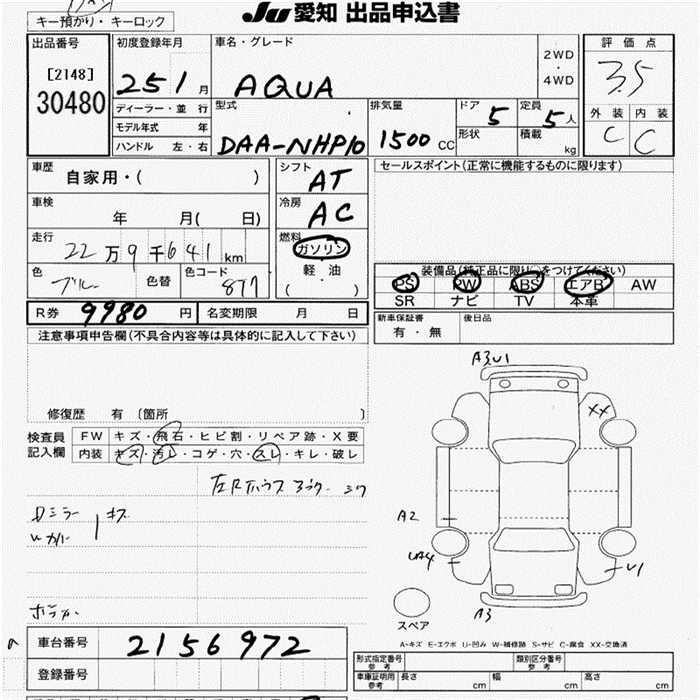 キー預かり・キーロック
JU 愛知 出品申込書
出品番号
[2148]
30480
初度登録年月
25 1 月
ディーラー・並 行
モデル年式 年
ハンドル 左・右
車名・グレード
AQUA
2WD
・
4WD
評 価 点
3.5
外 装 内 装
C C
型式
DAA-NHP10
排気量
1500 CC
ドア
5
定員
5 人
形状
積載
kg
車歴
自家用・( )
シフト
AT
セールスポイント(正常に機能するものに限ります)
車検
年 月( 日)
冷房
AC
走行
22万9千641km
燃料
ガソリン
軽・油
( ・ )
色
ブルー
色替
色コード
877
装備品(純正品に限り○をつけてください)
PS PW ABS エアB AW
SR ナビ TV 本革
R券 9980 円
名変期限 月 日
新車保証書
有・無
後日品
注意事項申告欄(不具合内容等は具体的に記入して下さい)
修復歴 有〔箇所 〕
検査員
記入欄
FW キズ・飛石・ヒビ割・リペア跡・X要
内装 キズ・汚レ・コゲ・穴・スレ・キレ・破レ
Dミラー
キズ
A3U1
XX
A2
UA4
U1
A3
スペア
A-キズ E-エクボ U-凹み W-補修跡 S-サビ C-腐食 XX-交換済
車台番号 2156972
登録番号
形式指定番号
参 考
類別区分番号
参 考
車庫証明用
参考
長さ cm
幅 cm
高さ cm